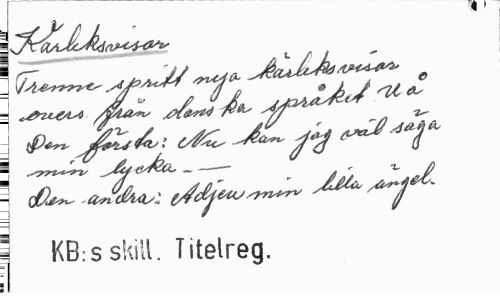 Kärleksvisor
Trenne spritt nya kärleksvisor
övers från danska språket U å
Den första: Nu kan jag väl säga
min lycka - —
Den andra: Adjeu min lilla ängel.
KB:s skill. Titelreg.